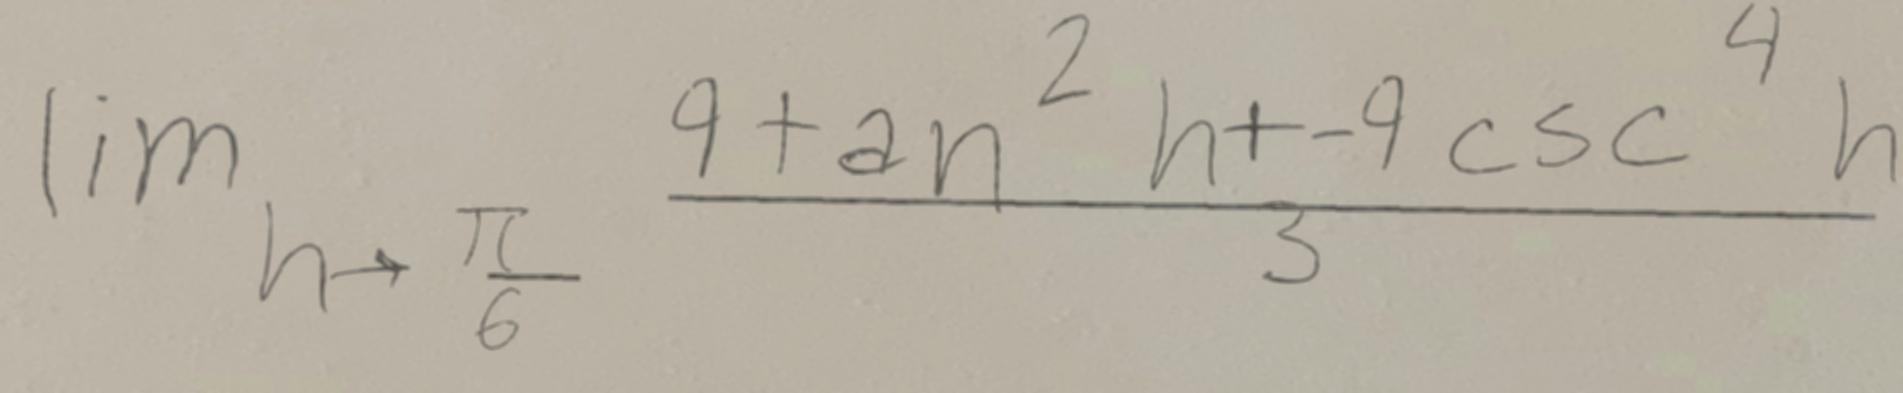 \lim_{h \to \frac{\pi}{6}} \frac{9 \tan^2 h + -9 \csc^4 h}{3}